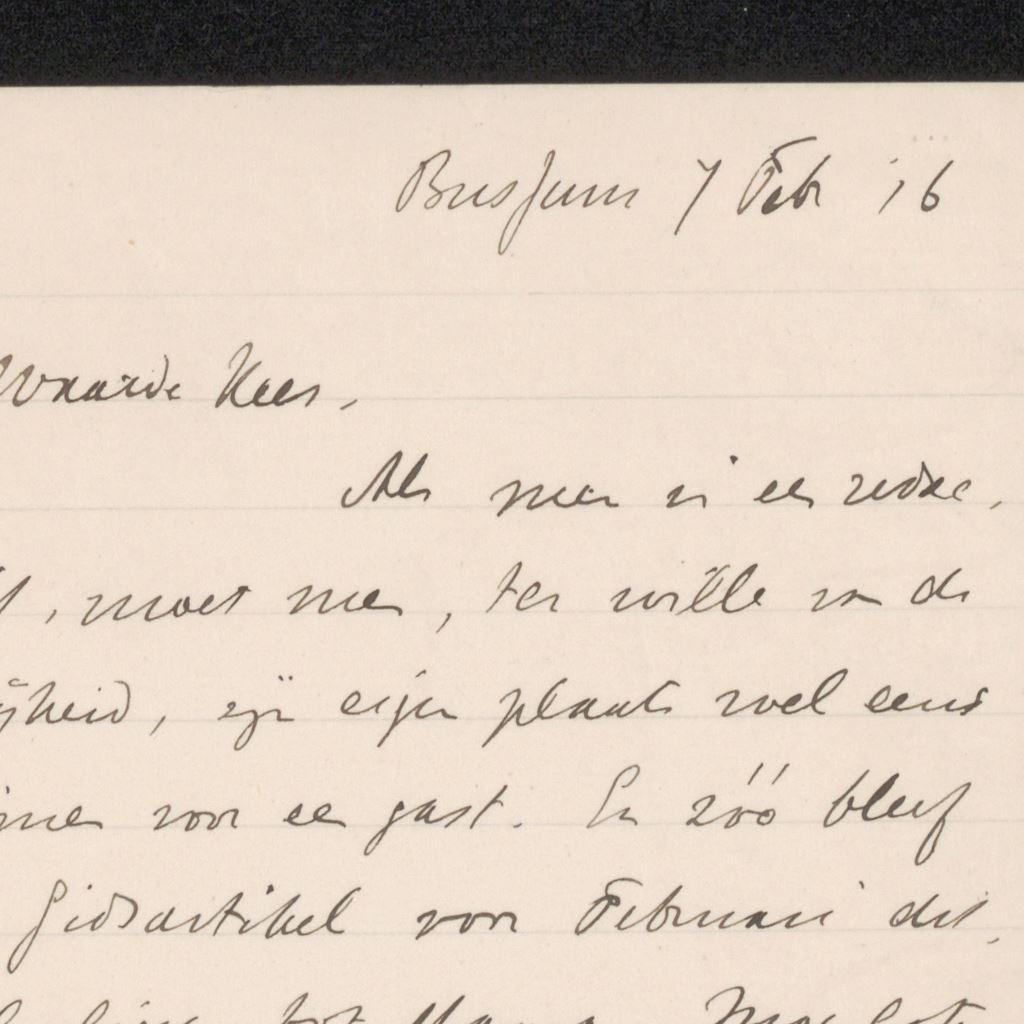 Bussum 7 Febr '16
Waarde Kees,
Als men in een redac,
, moet men, ter wille van de
heid, zijn eigen plaats wel eens
men voor een gast. En zóó bleef
Gidsartikel voor Februari dit,